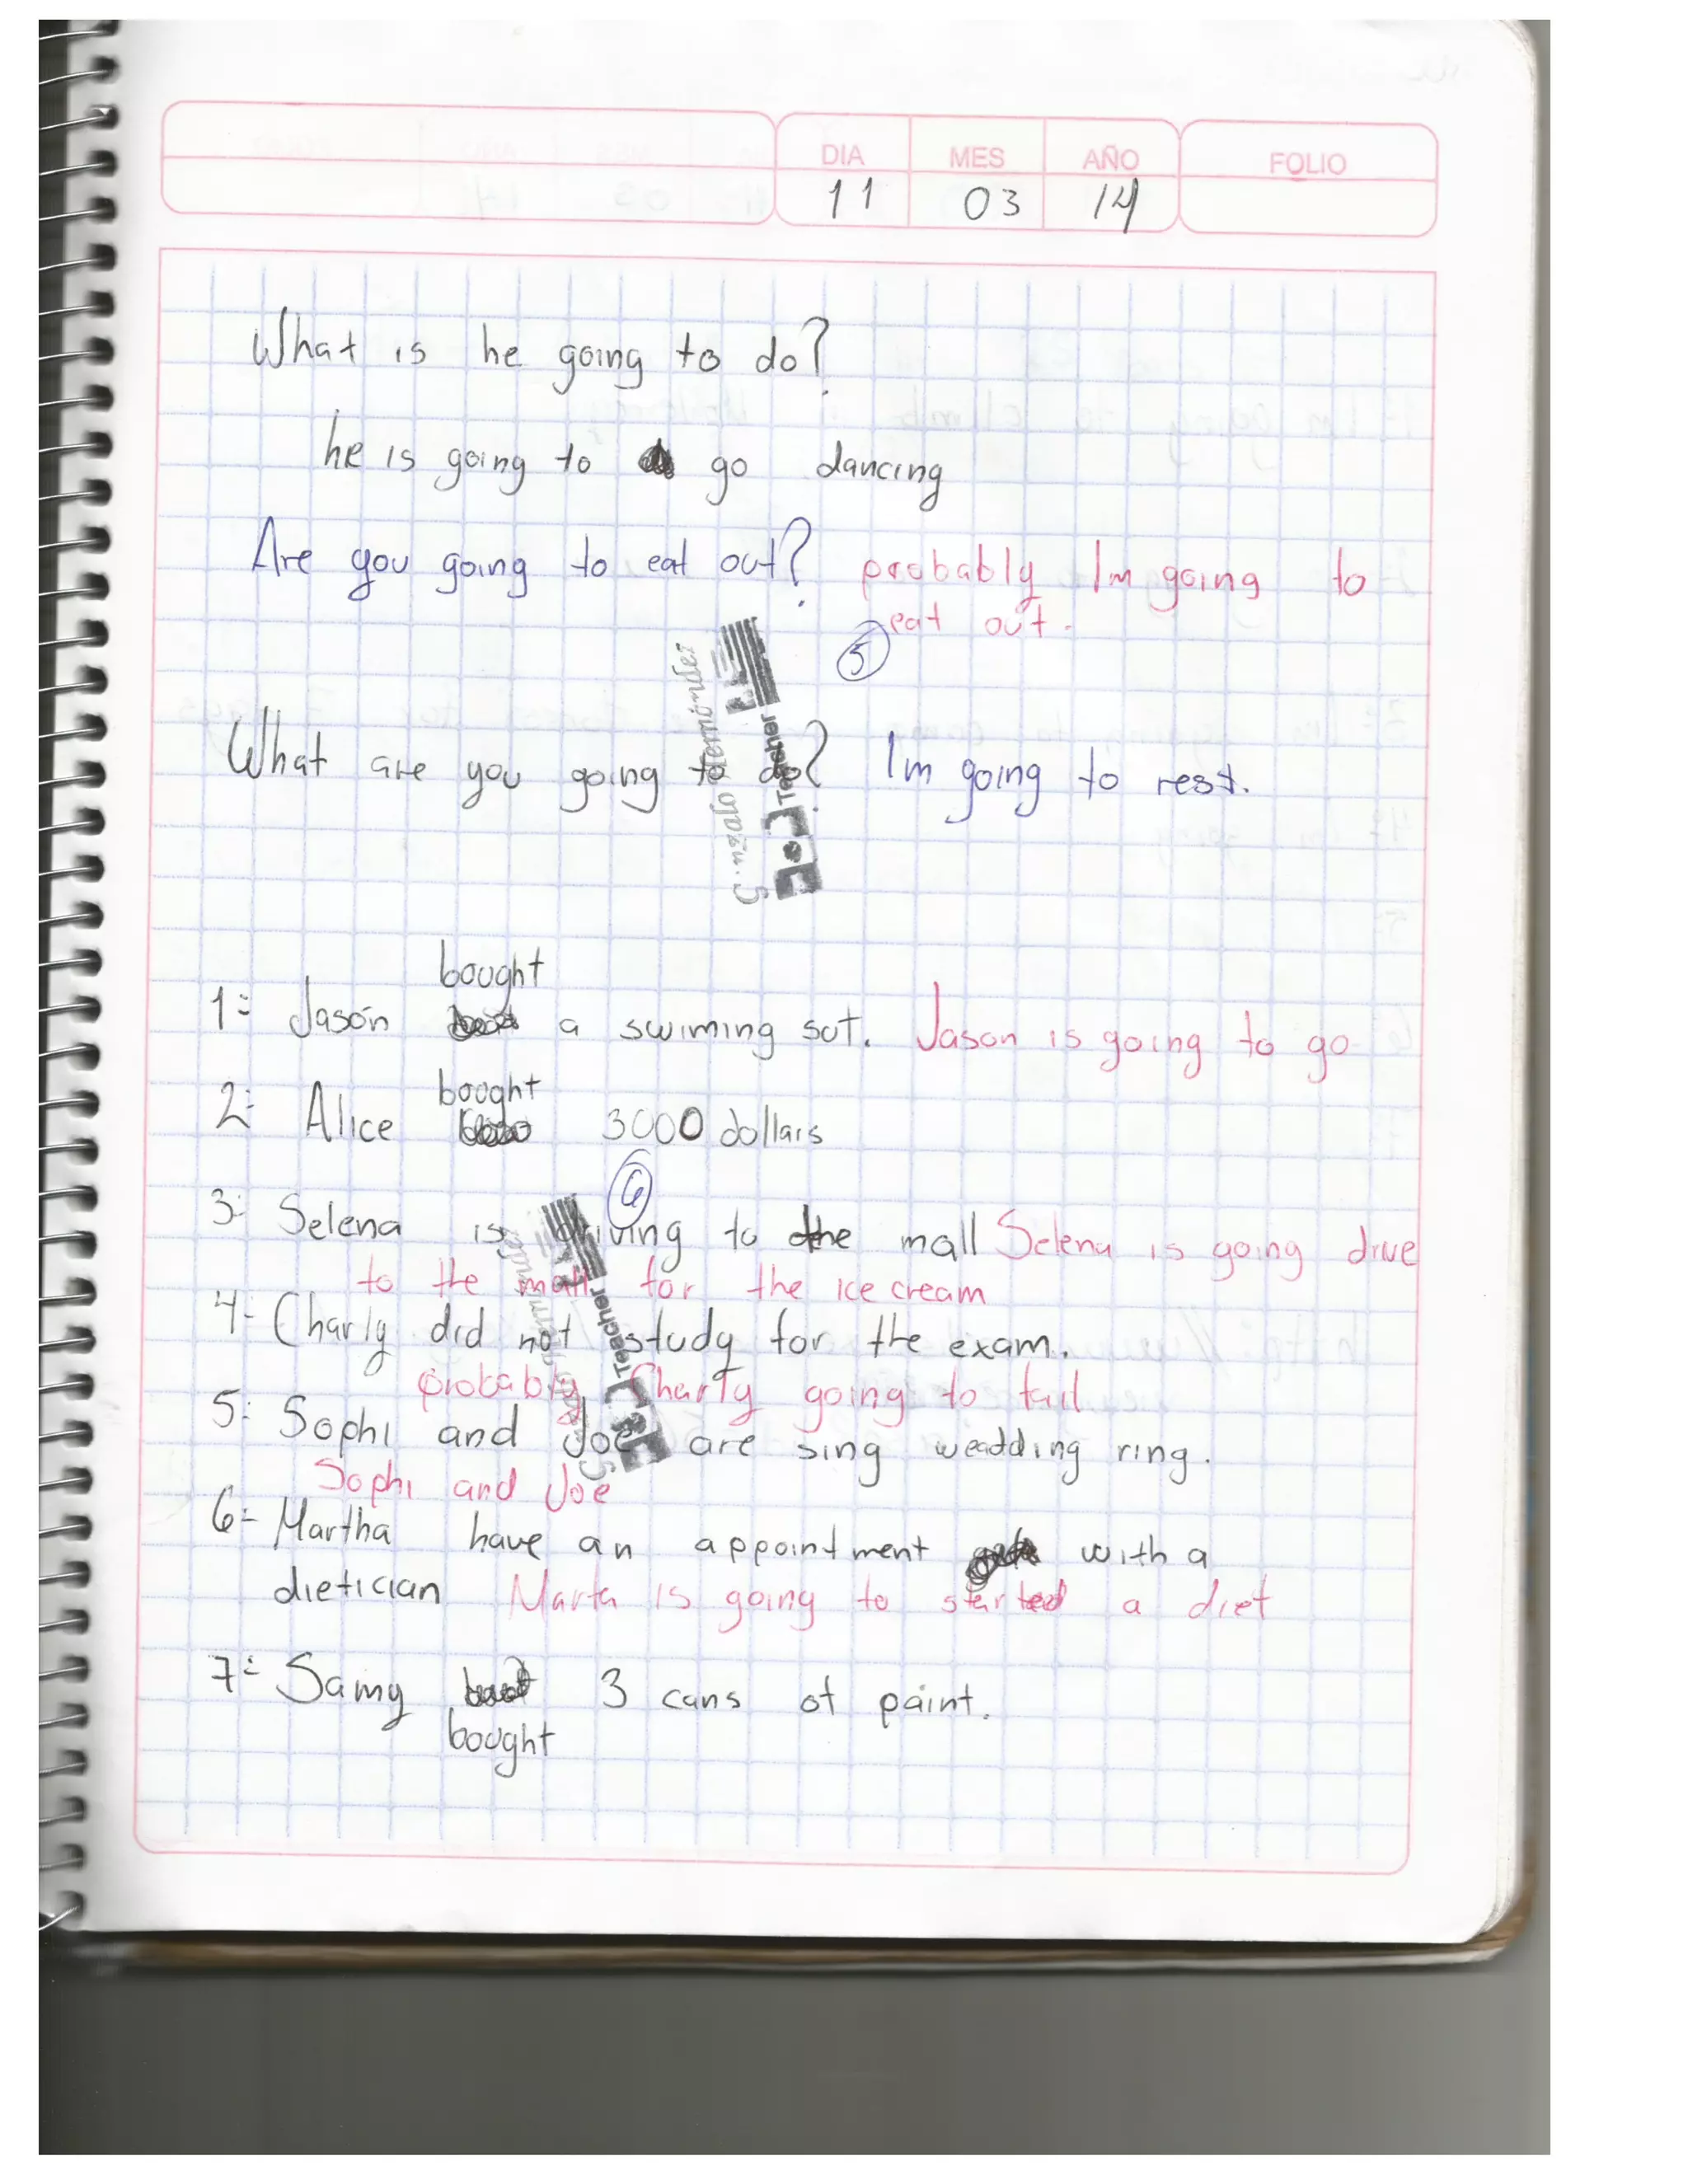 DIA MES AÑO FOLIO
11 03 14
What is he going to do?
he is going to go dancing
Are you going to eat out? probably Im going to
eat out.
5
What are you going to do? Im going to rest.
Hernández
Teacher
bought
1= Jason a swiming sut. Jason is going to go
bought
2= Alice 3000 dollars
6
3= Selena is driving to the mall Selena is going drive
to the mall for the ice cream
4- Charly did not study for the exam.
Teacher
probably Charly going to fail
5= Sophi and Joe are sing weadding ring.
Sophi and Joe
6= Martha have an appointment with a
dietician Marta is going to started a diet
7= Samy 3 cans of paint.
bought